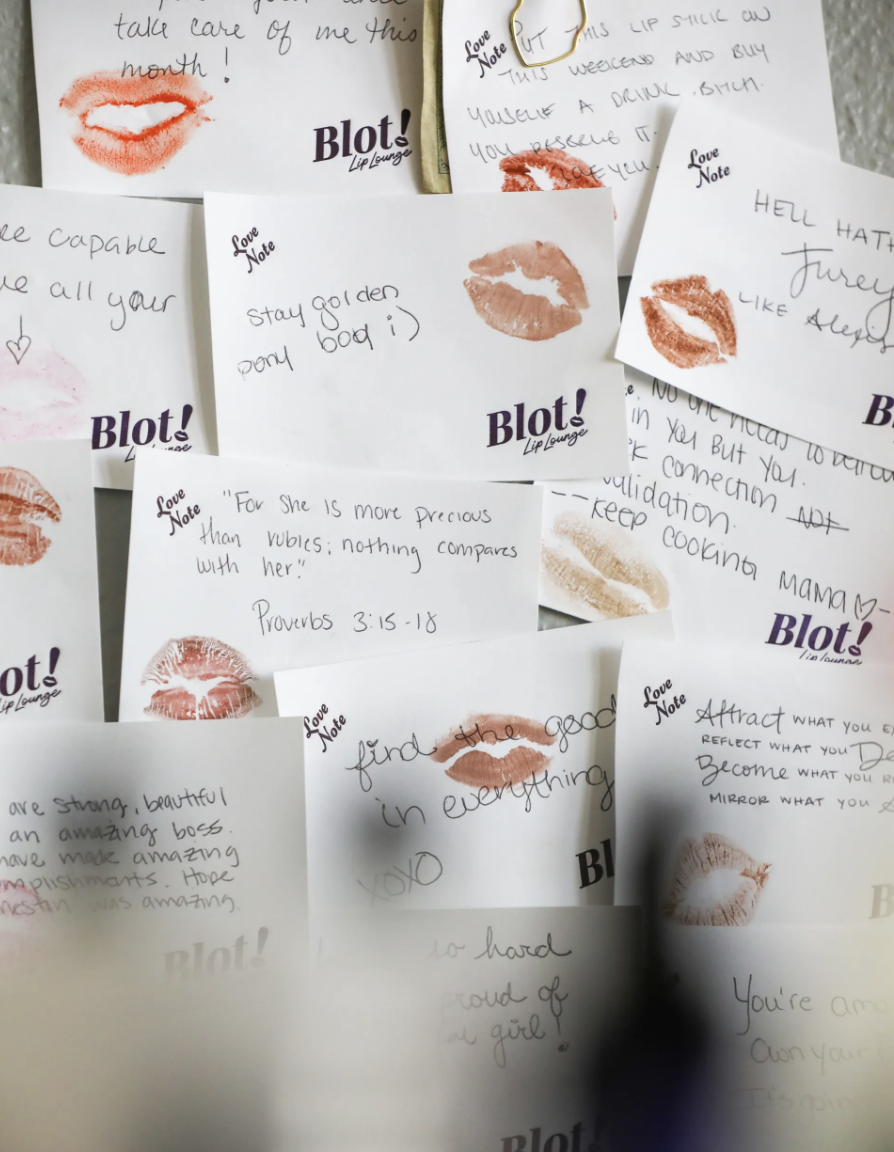 take care of me this
month!
Blot!
Lip Lounge
Love
Note
PUT THIS LIP STICK ON
THIS WEEKEND AND BUY
YOURSELF A DRINK, BITCH.
YOU DESERVE IT.
LOVE YOU.
Love
Note
HELL HATH
Furey
LIKE Alexis
B
capable
all your
Blot!
Lounge
Love
Note
stay golden
pony boy :)
Blot!
Lip Lounge
No one needs to
in You But You.
connection NOT
validation.
KEEP
COOKING
MAMA
Blot!
Lip Lounge
ot!
Lip Lounge
Love
Note
"For she is more precious
than rubies; nothing compares
with her."
Proverbs 3:15-18
Blot!
Love
Note
find the good
in everything
XOXO
Bl
Love
Note
Attract WHAT YOU
REFLECT WHAT YOU
Become WHAT YOU
MIRROR WHAT YOU
B
are strong, beautiful
an amazing boss.
have made amazing
Hope
was amazing.
Blot!
so hard
proud of
girl!
Blot!
You're
Own your
It's